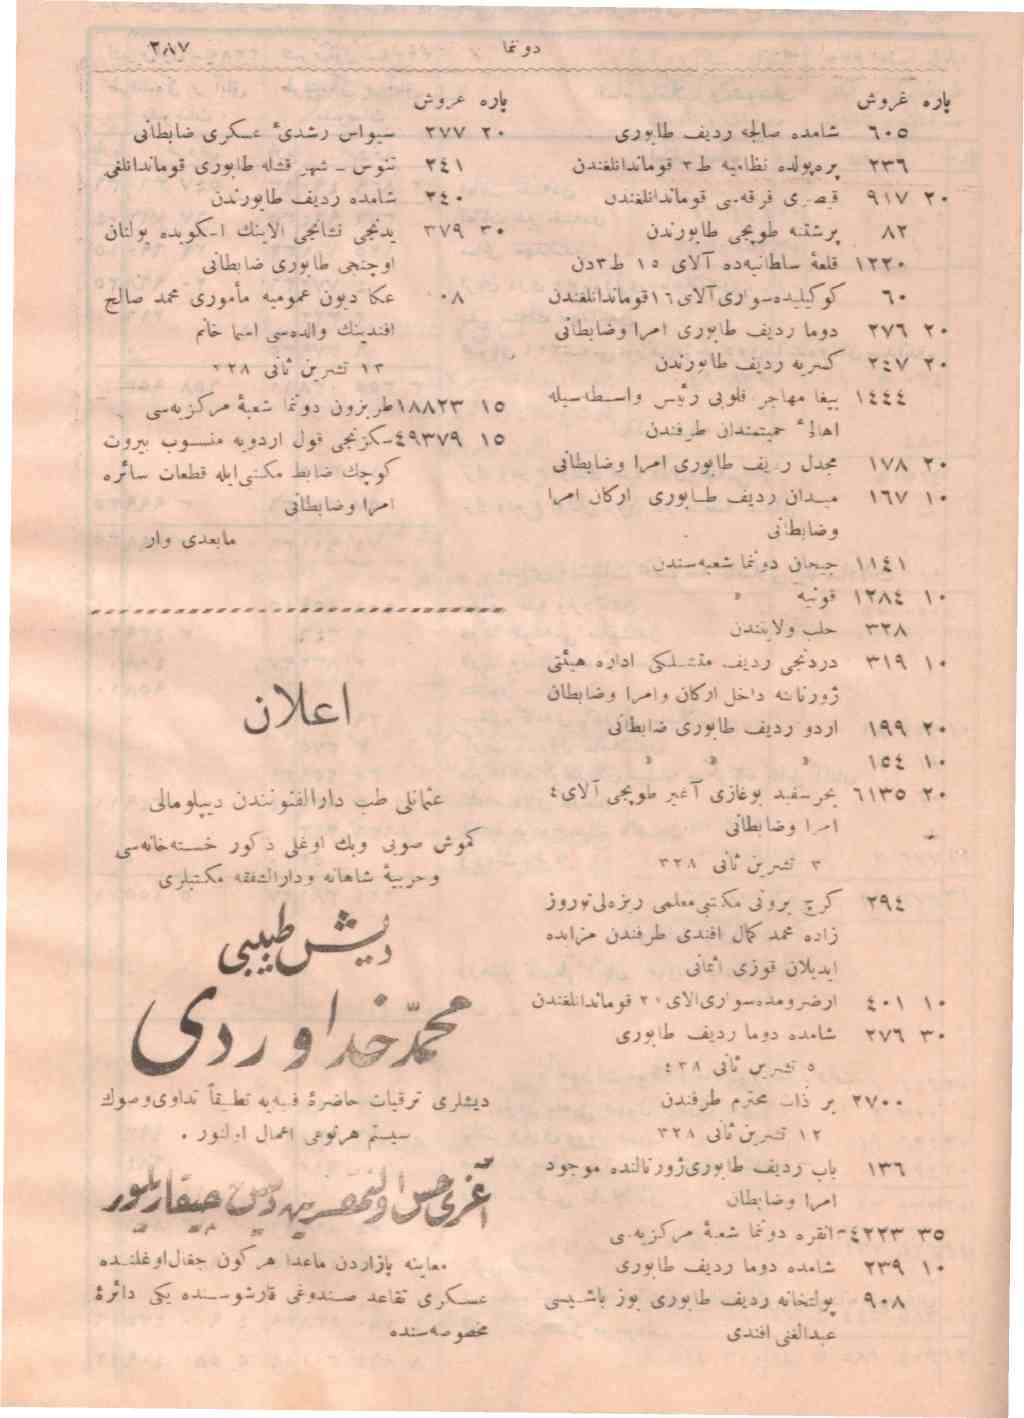 دوننما ٢٨٧
پاره غروش
٦٠٥ شامده صالحه رديف طابورى
٢٣٦ پره‌پولده نظاميه ط ٣ قومانداتلغندن
٢٠ ٩١٧ قيصرى فرقه‌سى قومانداتلغندن
٨٢ پرشتنه طوپجى طابورندن
١٢٢٠ قلعهٔ سلطانيه‌ده آلاى ١٥ ط ٣دن
٦٠ كوكيليده سوارى آلاى ١٦ قومانداتلغندن
٢٠ ٢٧٦ دوما رديف طابورى امرا وضابطانى
٢٠ ٢٤٧ كسريه رديف طابورندن
١٤٤٤ بيغا مهاجر قلوبى رئيس واسطه‌سيله
اهالئ حميتمندان طرفندن
٢٠ ١٧٨ مجدل رديف طابورى امرا وضابطانى
١٠ ١٦٧ ميدان رديف طابورى اركان امرا
وضابطانى
١١٤١ جيحان دوننما شعبه‌سندن
١٠ ١٢٨٤ قونيه »
٣٢٨ حلب ولايتندن
١٠ ٣١٩ دردنجى رديف مفتشلكى اداره هيئتى
ژورنالنه داخل اركان وامرا وضابطان
٢٠ ١٩٩ اردو رديف طابورى ضابطانى
١٠ ١٥٤ » » »
٢٠ ٦١٣٥ بحرسفيد بوغازى آغير طوپجى آلاى ٤
امرا وضابطانى
٣ تشرين ثانى ٣٢٨
٢٩٤ كرچ برونى مكتبى معلمى ريزه‌لى نوروز
زاده محمد كمال افندى طرفندن مزايده
ايديلان قوزى اثمانى
١٠ ٤٠١ ارضرومده سوارى الاى ٢٠ قومانداتلغندن
٣٠ ٢٧٦ شامده دوما رديف طابورى
٥ تشرين ثانى ٣٢٨
٢٧٠٠ بر ذات محترم طرفندن
١٢ تشرين ثانى ٣٢٨
١٣٦ باب رديف طابورى ژورنالنده موجود
امرا وضابطان
٣٥ ٤٢٢٣ انقره دوننما شعبهٔ مركزيه‌سى
١٠ ٢٣٩ شامده دوما رديف طابورى
٩٠٨ پولتخانه رديف طابورى يوز باشيسى
عبدالغنى افندى
پاره غروش
٢٠ ٢٧٧ سيواس رشدئ عسكرى ضابطانى
٢٤١ تنوس ـ شهر قشله طابورى قومانداتلغى
٣٤٠ شامده رديف طابورندن
٣٠ ٣٧٩ يدنجى نشانجى الاينك اسكوبده بولنان
اوچنجى طابورى ضابطانى
١٠٨ عكا ديون عموميه مأمورى محمد صالح
افندينك والده‌سى اسما خانم
١٣ تشرين ثانى ٣٢٨
١٥ ١٨٨٢٣ طربزون دوننما شعبهٔ مركزيه‌سى
١٥ ٤٩٣٧٩ سكزنجى قول اردويه منسوب بيروت
كوچك ضابط مكتبى ايله قطعات سائره
امرا وضابطانى
مابعدى وار
اعلان
عثمانلى طب دارالفنونندن ديپلومالى
كموش صويى وبك اوغلى ذكور خسته‌خانه‌سى
وحربيهٔ شاهانه ودارالشفقه مكتبلرى
ديش طبيبى
محمد خداوردى
ديشلرى ترقيات حاضرهٔ فنيه‌يه تطبيقاً تداوى وصوك
سيستم هرنوعى اعمال اولنور .
آغرى حس اولنمقسزين ديش چيقاريليور
معاينه پازاردن ماعدا هركون جغال اوغلنده
عسكرى تقاعد صندوغى قارشوسنده يكى دائرهٔ
مخصوصه‌سنده